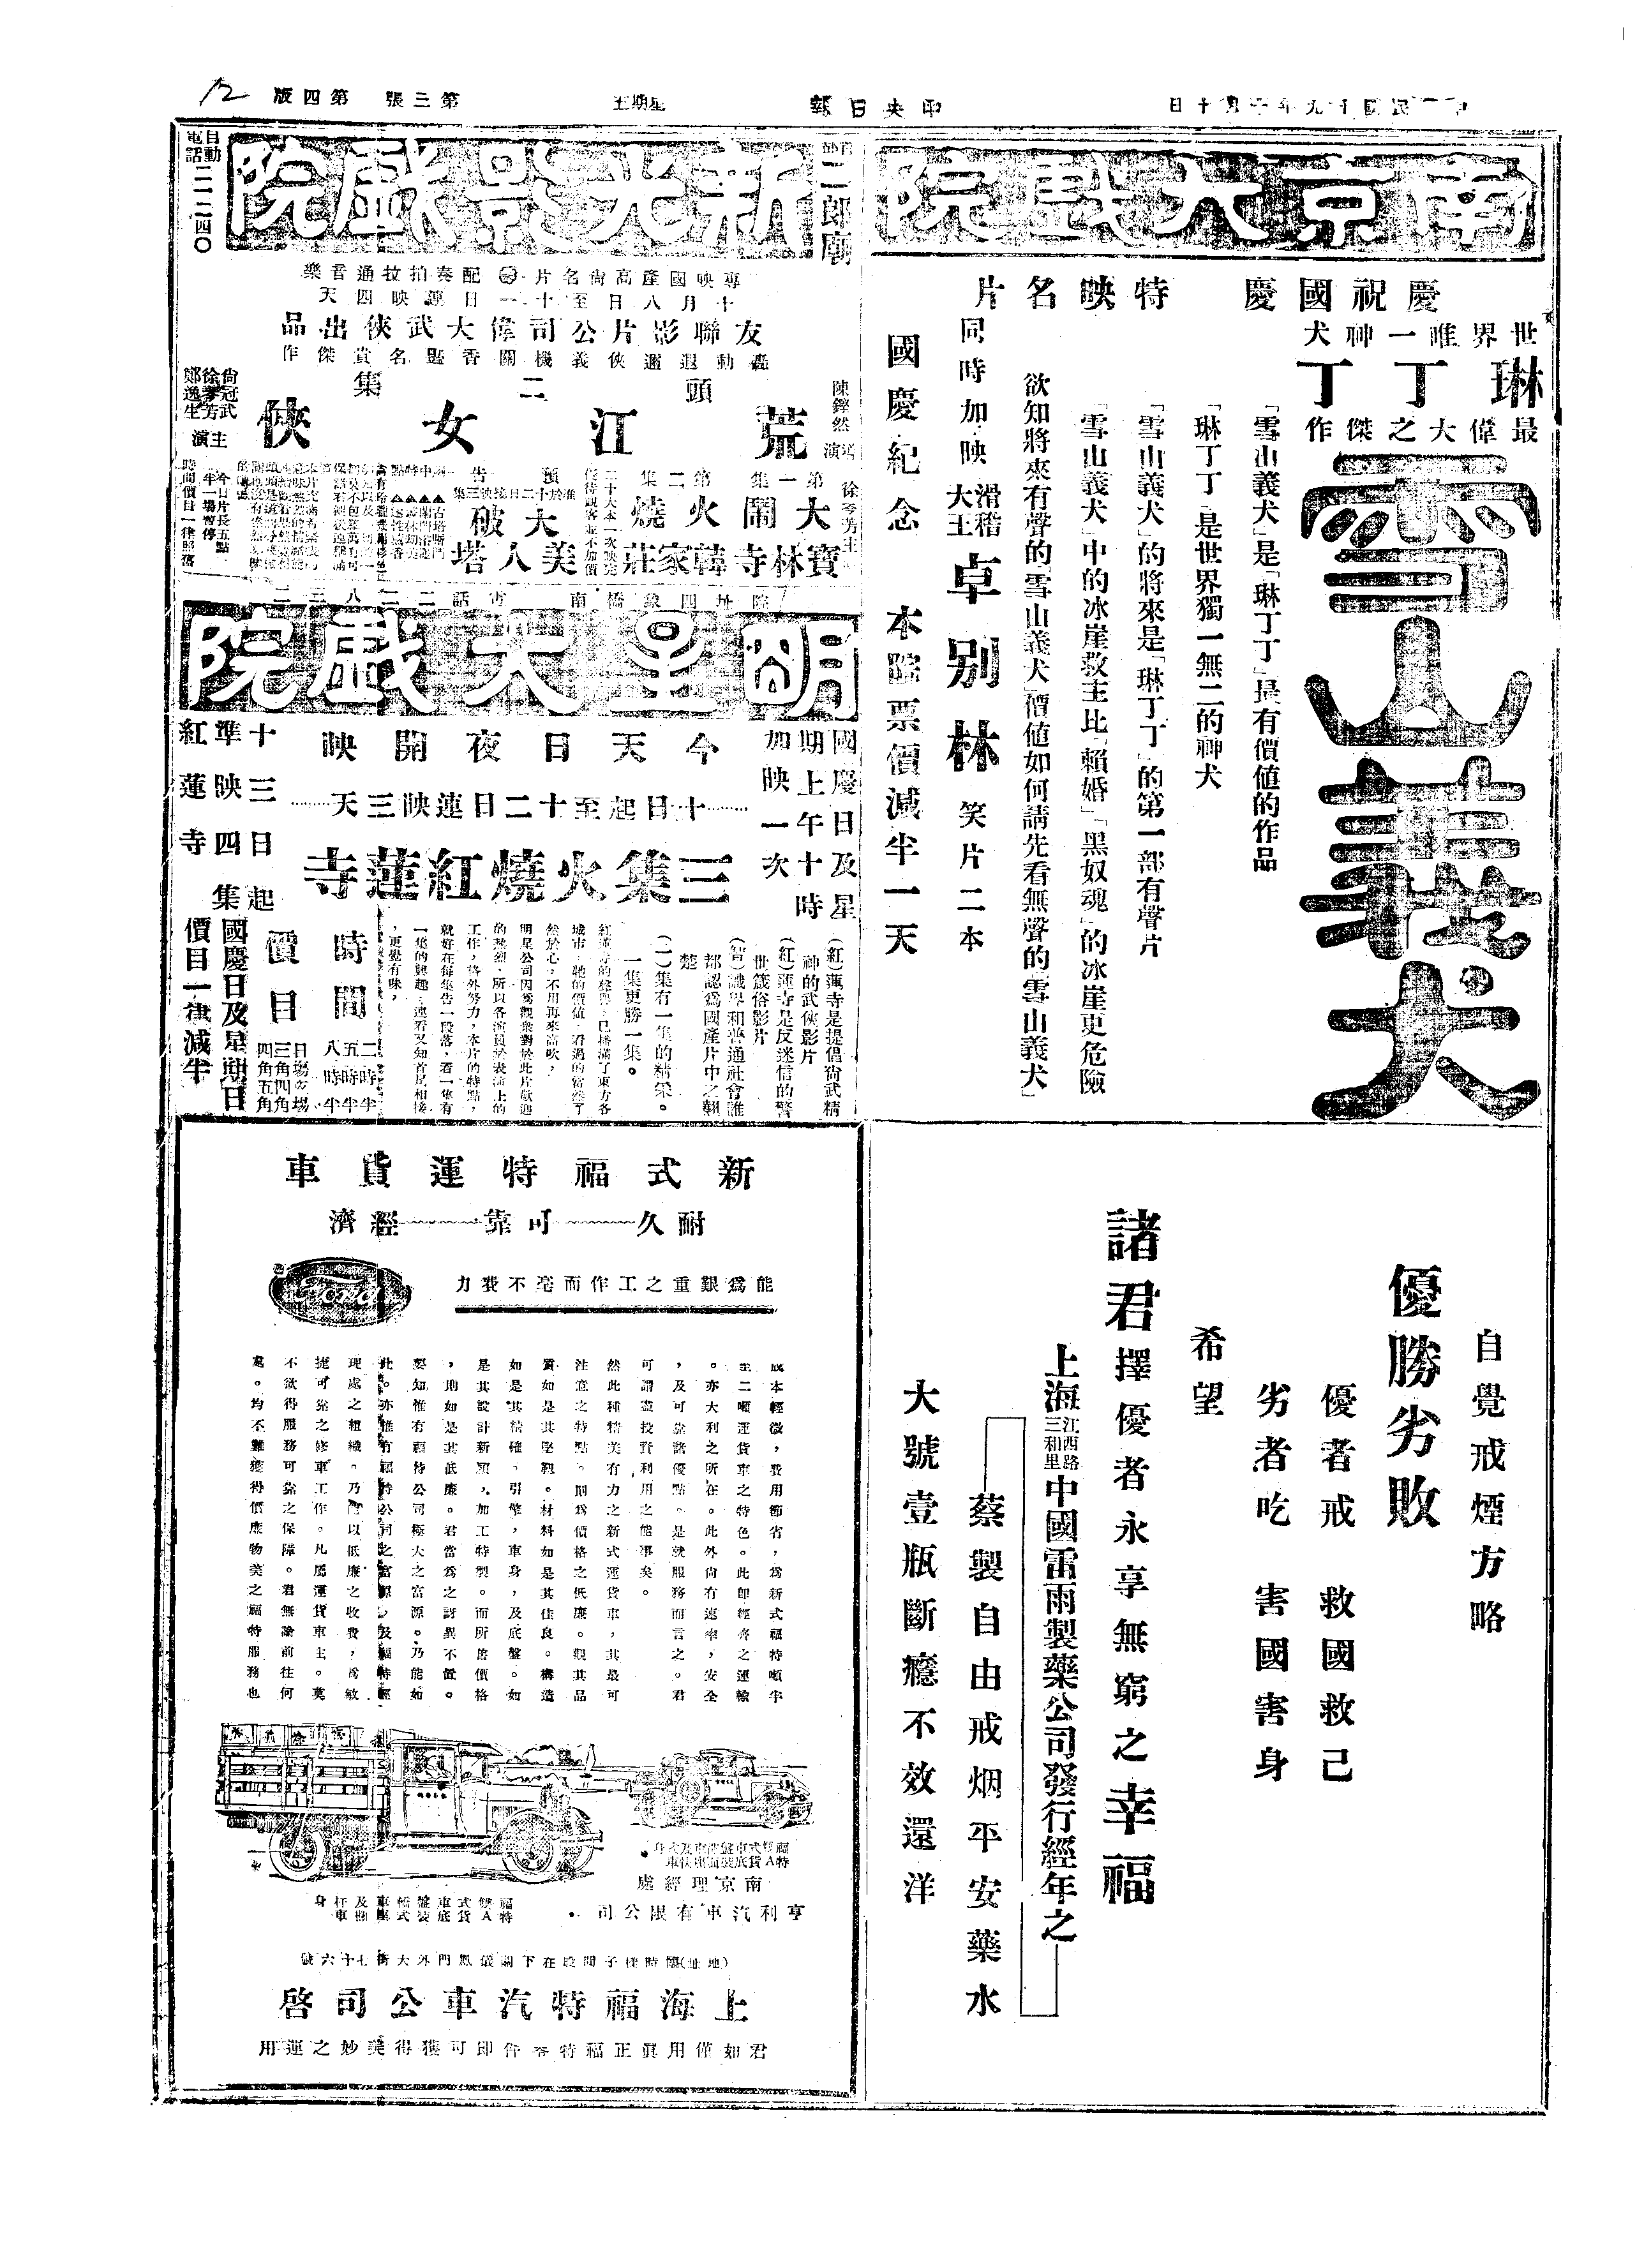 中華民國十九年十月十日
中央日報
星期五
第三張 第四版
南京大戲院
慶祝國慶 特映名片
世界唯一神犬
琳丁丁
最偉大之傑作
雪山義犬
「雪山義犬」是「琳丁丁」最有價值的作品
「琳丁丁」是世界獨一無二的神犬
「雪山義犬」的將來是「琳丁丁」的第一部有聲片
「雪山義犬」中的冰崖救主比「賴婚」「黑奴魂」的冰崖更危險
欲知將來有聲的「雪山義犬」價值如何請先看無聲的「雪山義犬」
同時加映滑稽大王卓別林笑片二本
國慶紀念 本院票價減半一天
二郎廟
新光影戲院
自動電話二一二四〇
專映國產高尚名片 配奏拍拉通音樂
十月八日至十一日連映四天
友聯影片公司偉大武俠出品
轟動遐邇俠義機關香豔名貴傑作
頭二集
荒江女俠
陳鏗然導演
徐琴芳主演
尚冠武
徐琴芳
鄭逸生
主演
第一集
大鬧寶林寺
第二集
火燒韓家莊
預告
大破美人塔
今日片長五點半一場暫停
時間價目一律照舊
院址四象橋南 電話二二八三二
明星大戲院
國慶日及星期上午十時加映一次
今天日夜開映
十日起至十二日連映三天
三集火燒紅蓮寺
十三日起準映四集紅蓮寺
(紅)蓮寺是提倡尚武精神的武俠影片
(紅)蓮寺是反迷信的警世箴俗影片
(智)識界和普通社會誰都認為國產片中之翹楚
(一)集有一集的精采。
一集更勝一集。
紅蓮寺的聲譽,已播滿了東方各城市,牠的價值,看過的當然了然於心,不用再來富吹,
明星公司因為觀衆對於此片歡迎的熱烈,所以各演員於表演上的工作,格外努力,本片的特點,就好在每集告一段落,看一集有一集的興趣,連看又知首尾相接,更覺有味,
時間
二時半
五時半
八時半
價目
日場 夜場
三角 四角
四角 五角
國慶日及星期日價目一律減半
自覺戒煙方略
優勝劣敗
優者戒 救國救己
劣者吃 害國害身
希望
諸君擇優者永享無窮之幸福
上海江西路三和里中國雷雨製藥公司發行經年之
蔡製自由戒烟平安藥水
大號壹瓶斷癮不效還洋
新式福特運貨車
耐久 可靠 經濟
Ford
能為艱重之工作而毫不費力
成本輕微,費用節省,為新式福特噸半
至二噸運貨車之特色。此卽經濟之運輸
。亦大利之所在。此外尚有速率,安全
,及可靠諸優點。是就服務而言之。君
可謂盡投資利用之能事矣。
然此種精美有力之新式運貨車,其最可
注意之特點。則為價格之低廉。觀其品
質如是其堅靱。材料如是其佳良。構造
如是其精確。引擎,車身,及底盤。如
是其設計新穎,加工特製。而所售價格
,則如是其低廉。君當為之訝異不置。
要知惟有福特公司極大之富源。乃能如
此。亦惟有福特公司之富源,及福特經
理處之組織。乃能以低廉之收費,為敏
捷可靠之修車工作。凡屬運貨車主。莫
不欲得服務可靠之保障。君無論前往何
處。均不難獲得價廉物美之福特服務也
南京經理處
亨利汽車有限公司
(地址)臨時樣子間設在下關儀鳳門外大街七十六號
上海福特汽車公司啓
君如僅用眞正福特零件卽可獲得美妙之運用